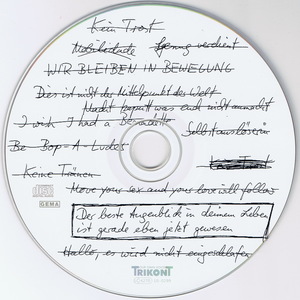 Kein Trost
Mobilitäde Genug verdient
WIR BLEIBEN IN BEWEGUNG
Dies ist nicht der Mittelpunkt der Welt
Macht kaputt was euch nicht anmacht
I wish I had a
Selbstauslöserin
Be-Bop-A-Ludes
Keine Tränen
Move your sex and your love will follow
Der beste Augenblick in deinem Leben
ist gerade eben jetzt gewesen
Hallo, es wird nicht eingeschlafen
GEMA
TRIKONT